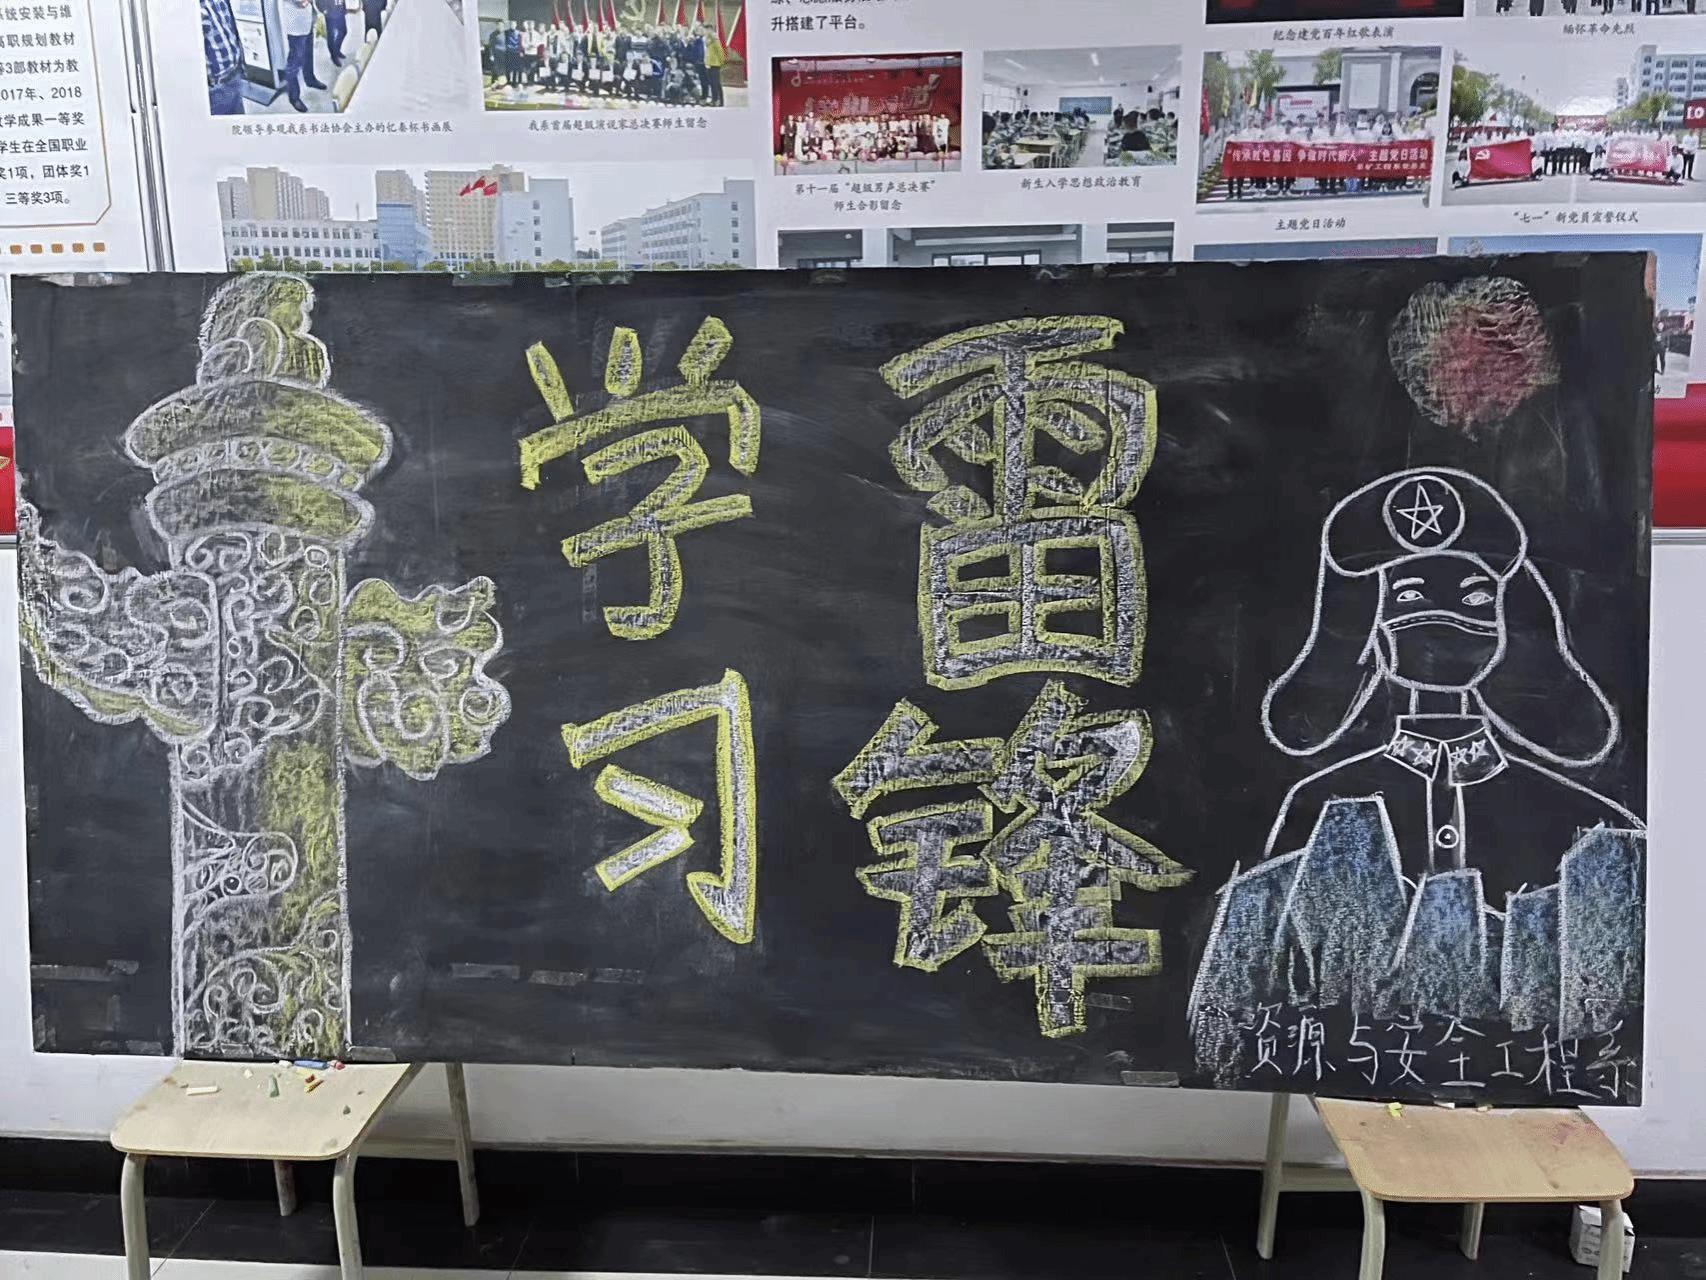 系统安装与维
高职规划教材
等3部教材为教
2017年、2018
教学成果一等奖
学生在全国职业
奖1项，团体奖1
三等奖3项。
升搭建了平台。
纪念建党百年红歌表演
缅怀革命先烈
院领导参观我系书法协会主办的忆秦怀书画展
我系首届超级演说家总决赛师生留念
第十一届“超级男声总决赛”
师生合影留念
新生入学思想政治教育
“传承红色基因 争做时代新人”主题党日活动
主题党日活动
“七一”新党员宣誓仪式
学习
雷锋
资源与安全工程系